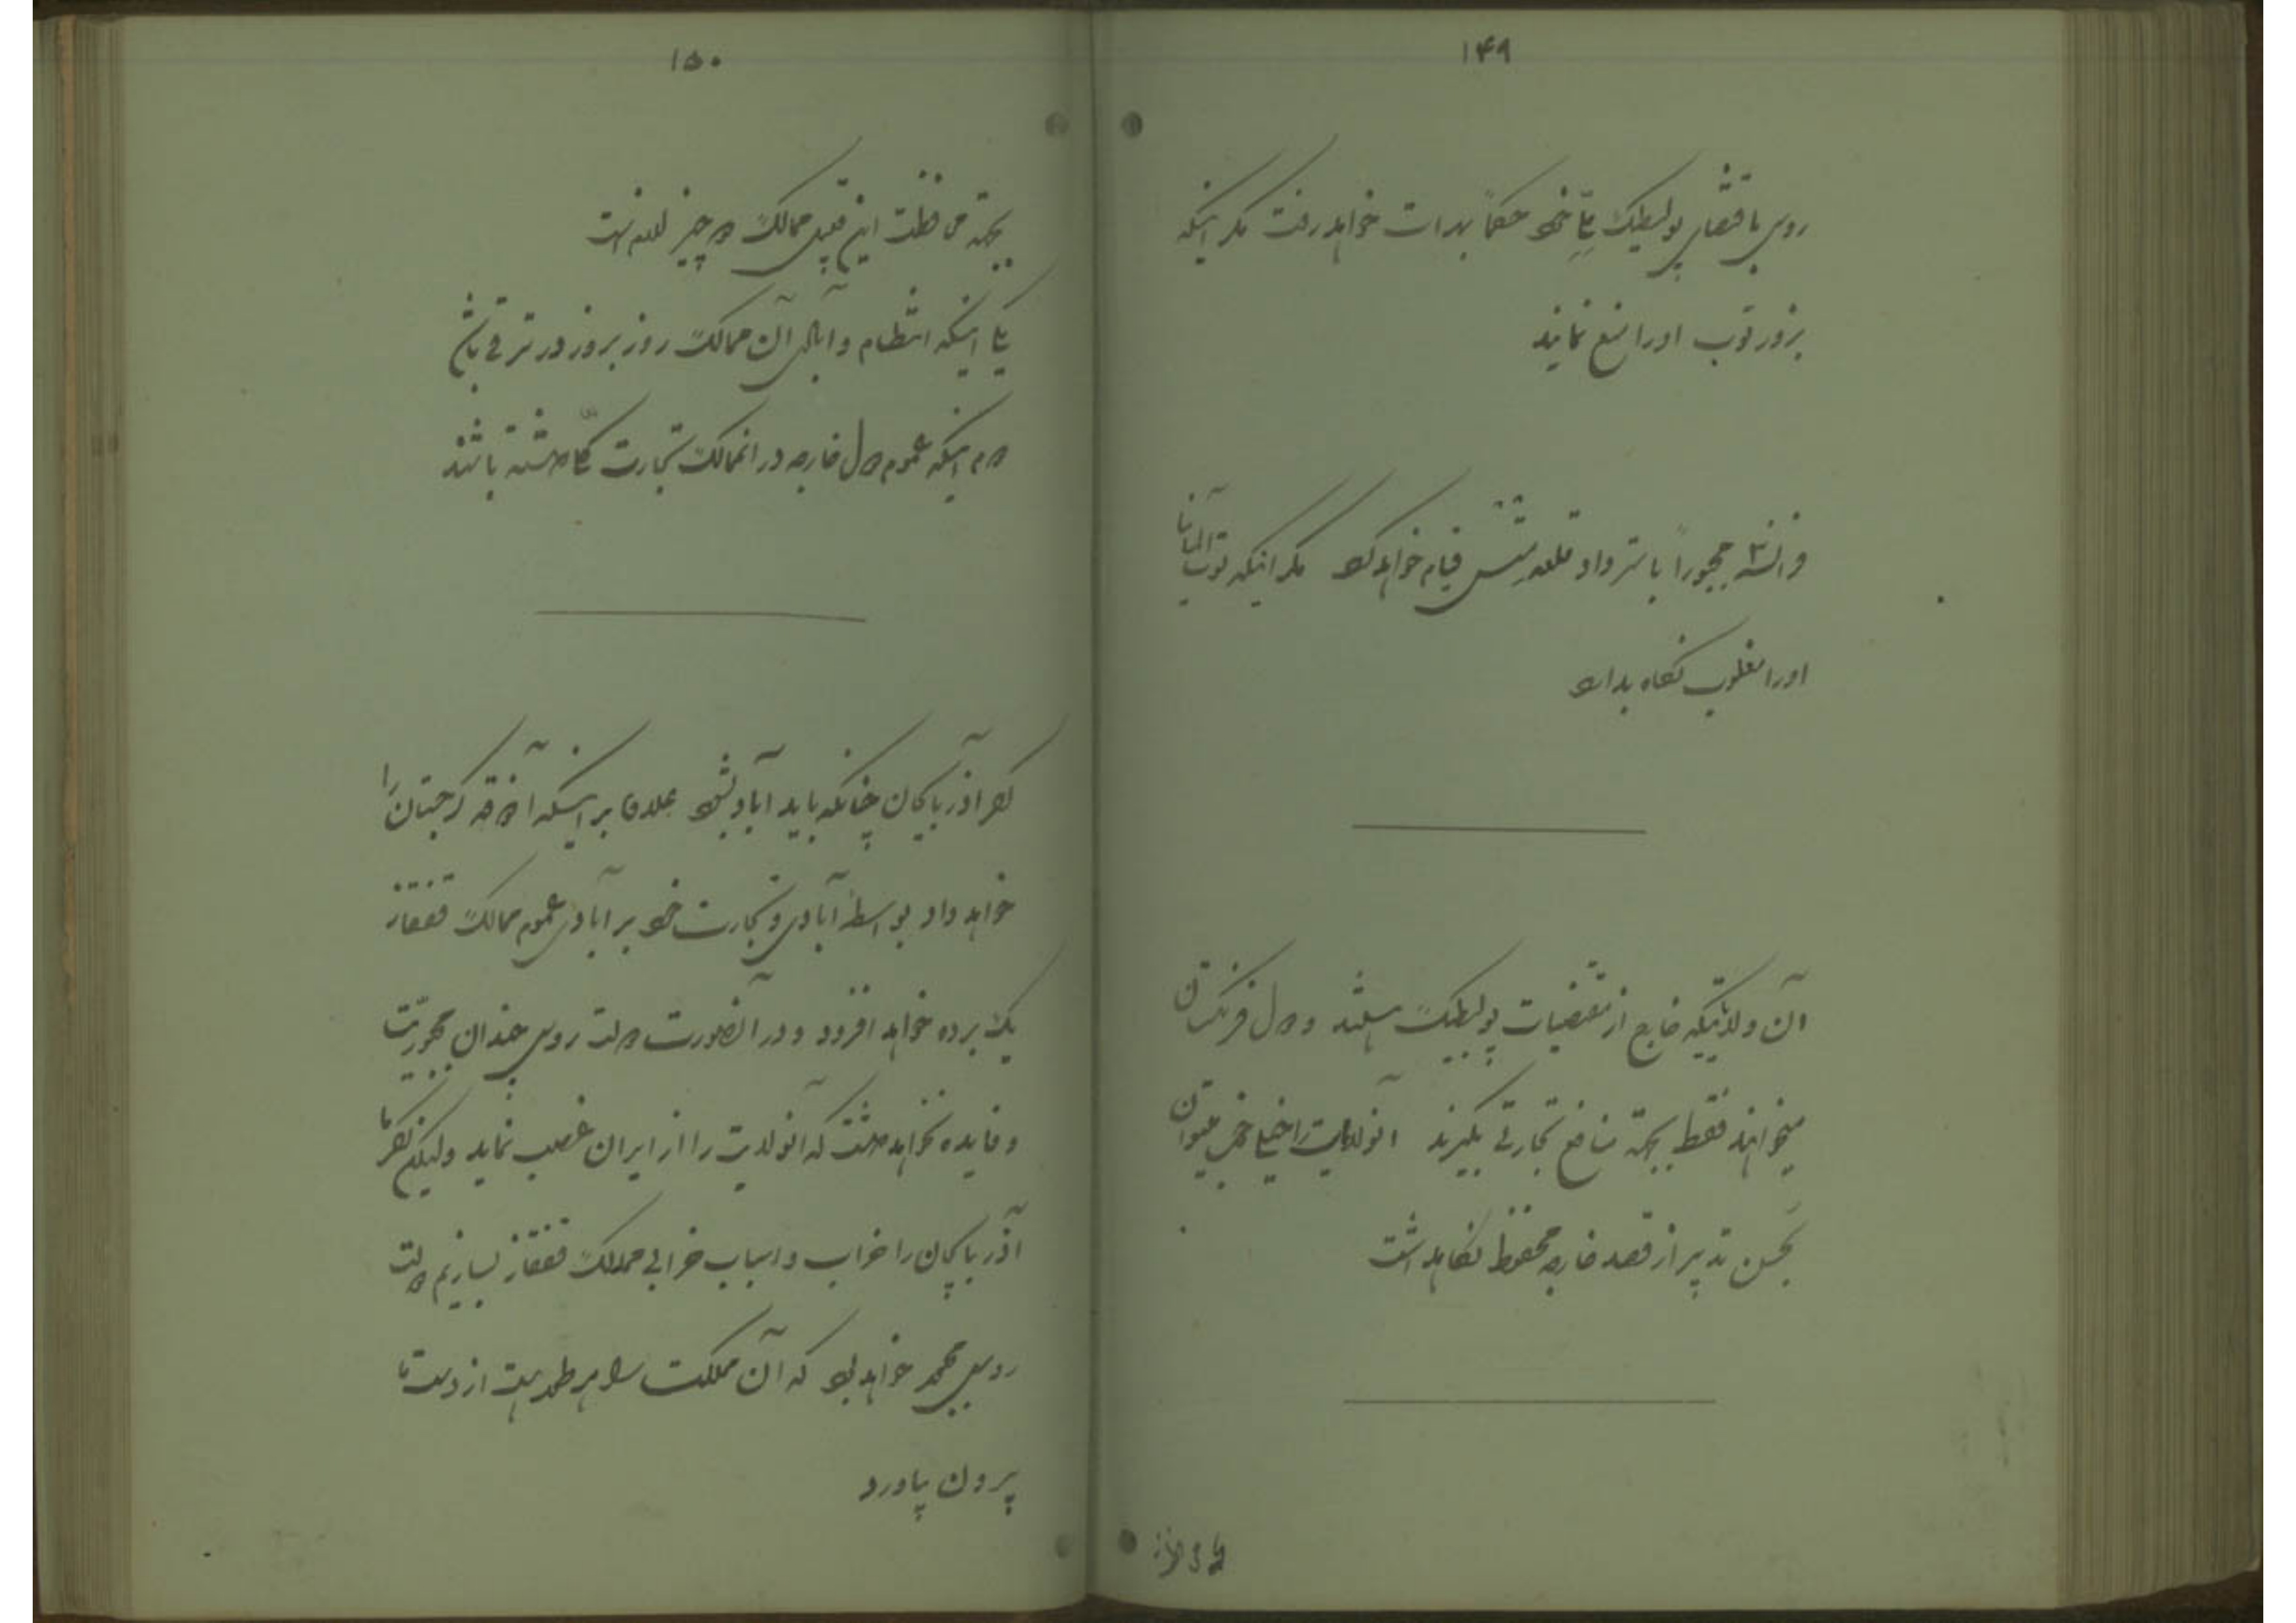 ۱۴۹
روس باقتضای پولیطیک ملّی خود حکماً بهرات خواهد رفت مگر اینکه
بزور توپ او را منع نمایند
فرانسه مجبوراً باسترداد قلعه متس قیام خواهد کرد مگر اینکه توپ آلمانیا
او را مغلوب نگاه بدارد
آن ولایتیکه خارج از مقتضیات پولیطیک هستند و دول فرنگستان
میخواهند فقط بجهة منافع تجارتی بگیرند آنولایت را خیلی خوب میتوان
بحسن تدبیر از قصد خارجه محفوظ نگاهداشت
۱۵۰
بجهة محافظت این قبیل ممالک دو چیز لازمست
یکی اینکه انتظام و آبادی آن ممالک روز بروز در ترقی باشد
دوم اینکه عموم دول خارجه در انممالک تجارت کلّی داشته باشند
اگر آذربایجان چنانکه باید آباد بشود علاوه بر اینکه آذوقه گرجستان را
خواهد داد بواسطهٔ آبادی و تجارت خود بر آبادی عموم ممالک قفقاز
یک برده خواهد افزود و در آنصورت دولت روس چندان مجبوریّت
و فایده نخواهد داشت که آنولایت را از ایران غصب نماید ولیکن اگر ما
آذربایجان را خراب و اسباب خرابی ممالک قفقاز بسازیم دولت
روس مجبور خواهد بود که آن مملکت را بهر طور هست از دست ما
بیرون بیاورد